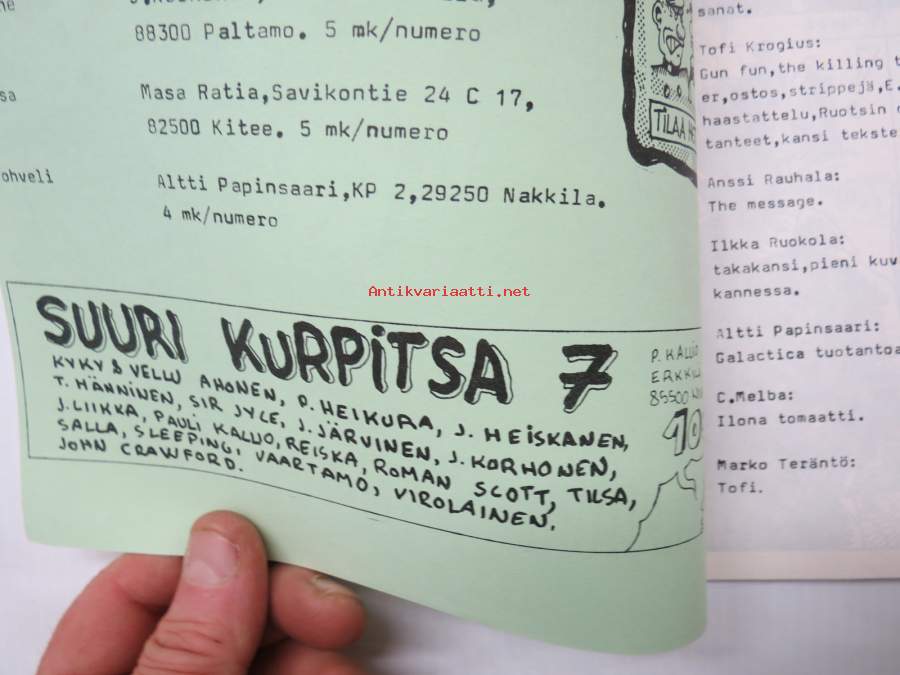 88300 Paltamo. 5 mk/numero
Masa Ratia,Savikontie 24 C 17,
82500 Kitee. 5 mk/numero
ohveli
Altti Papinsaari,KP 2,29250 Nakkila.
4 mk/numero
TILAA
SUURI KURPITSA 7
KYKY & VELLU AHONEN, P. HEIKURA, J. HEISKANEN,
T. HÄNNINEN, SIR JYLE, J. JÄRVINEN, J. KORHONEN,
J. LIIKKA, PAULI KALLIO, REISKA, ROMAN SCOTT, TILSA,
SALLA, SLEEPING, VAARTAMO, VIROLAINEN,
JOHN CRAWFORD.
P. KALLIO
ERKKI
85500
10
sanat.
Tofi Krogius:
Gun fun,the killing
er,ostos,strippejä,E.
haastattelu,Ruotsin
tanteet,kansi tekste
Anssi Rauhala:
The message.
Ilkka Ruokola:
takakansi,pieni kuv
kannessa.
Altti Papinsaari:
Galactica tuotantoa
C.Melba:
Ilona tomaatti.
Marko Teräntö:
Tofi.
Antikvariaatti.net